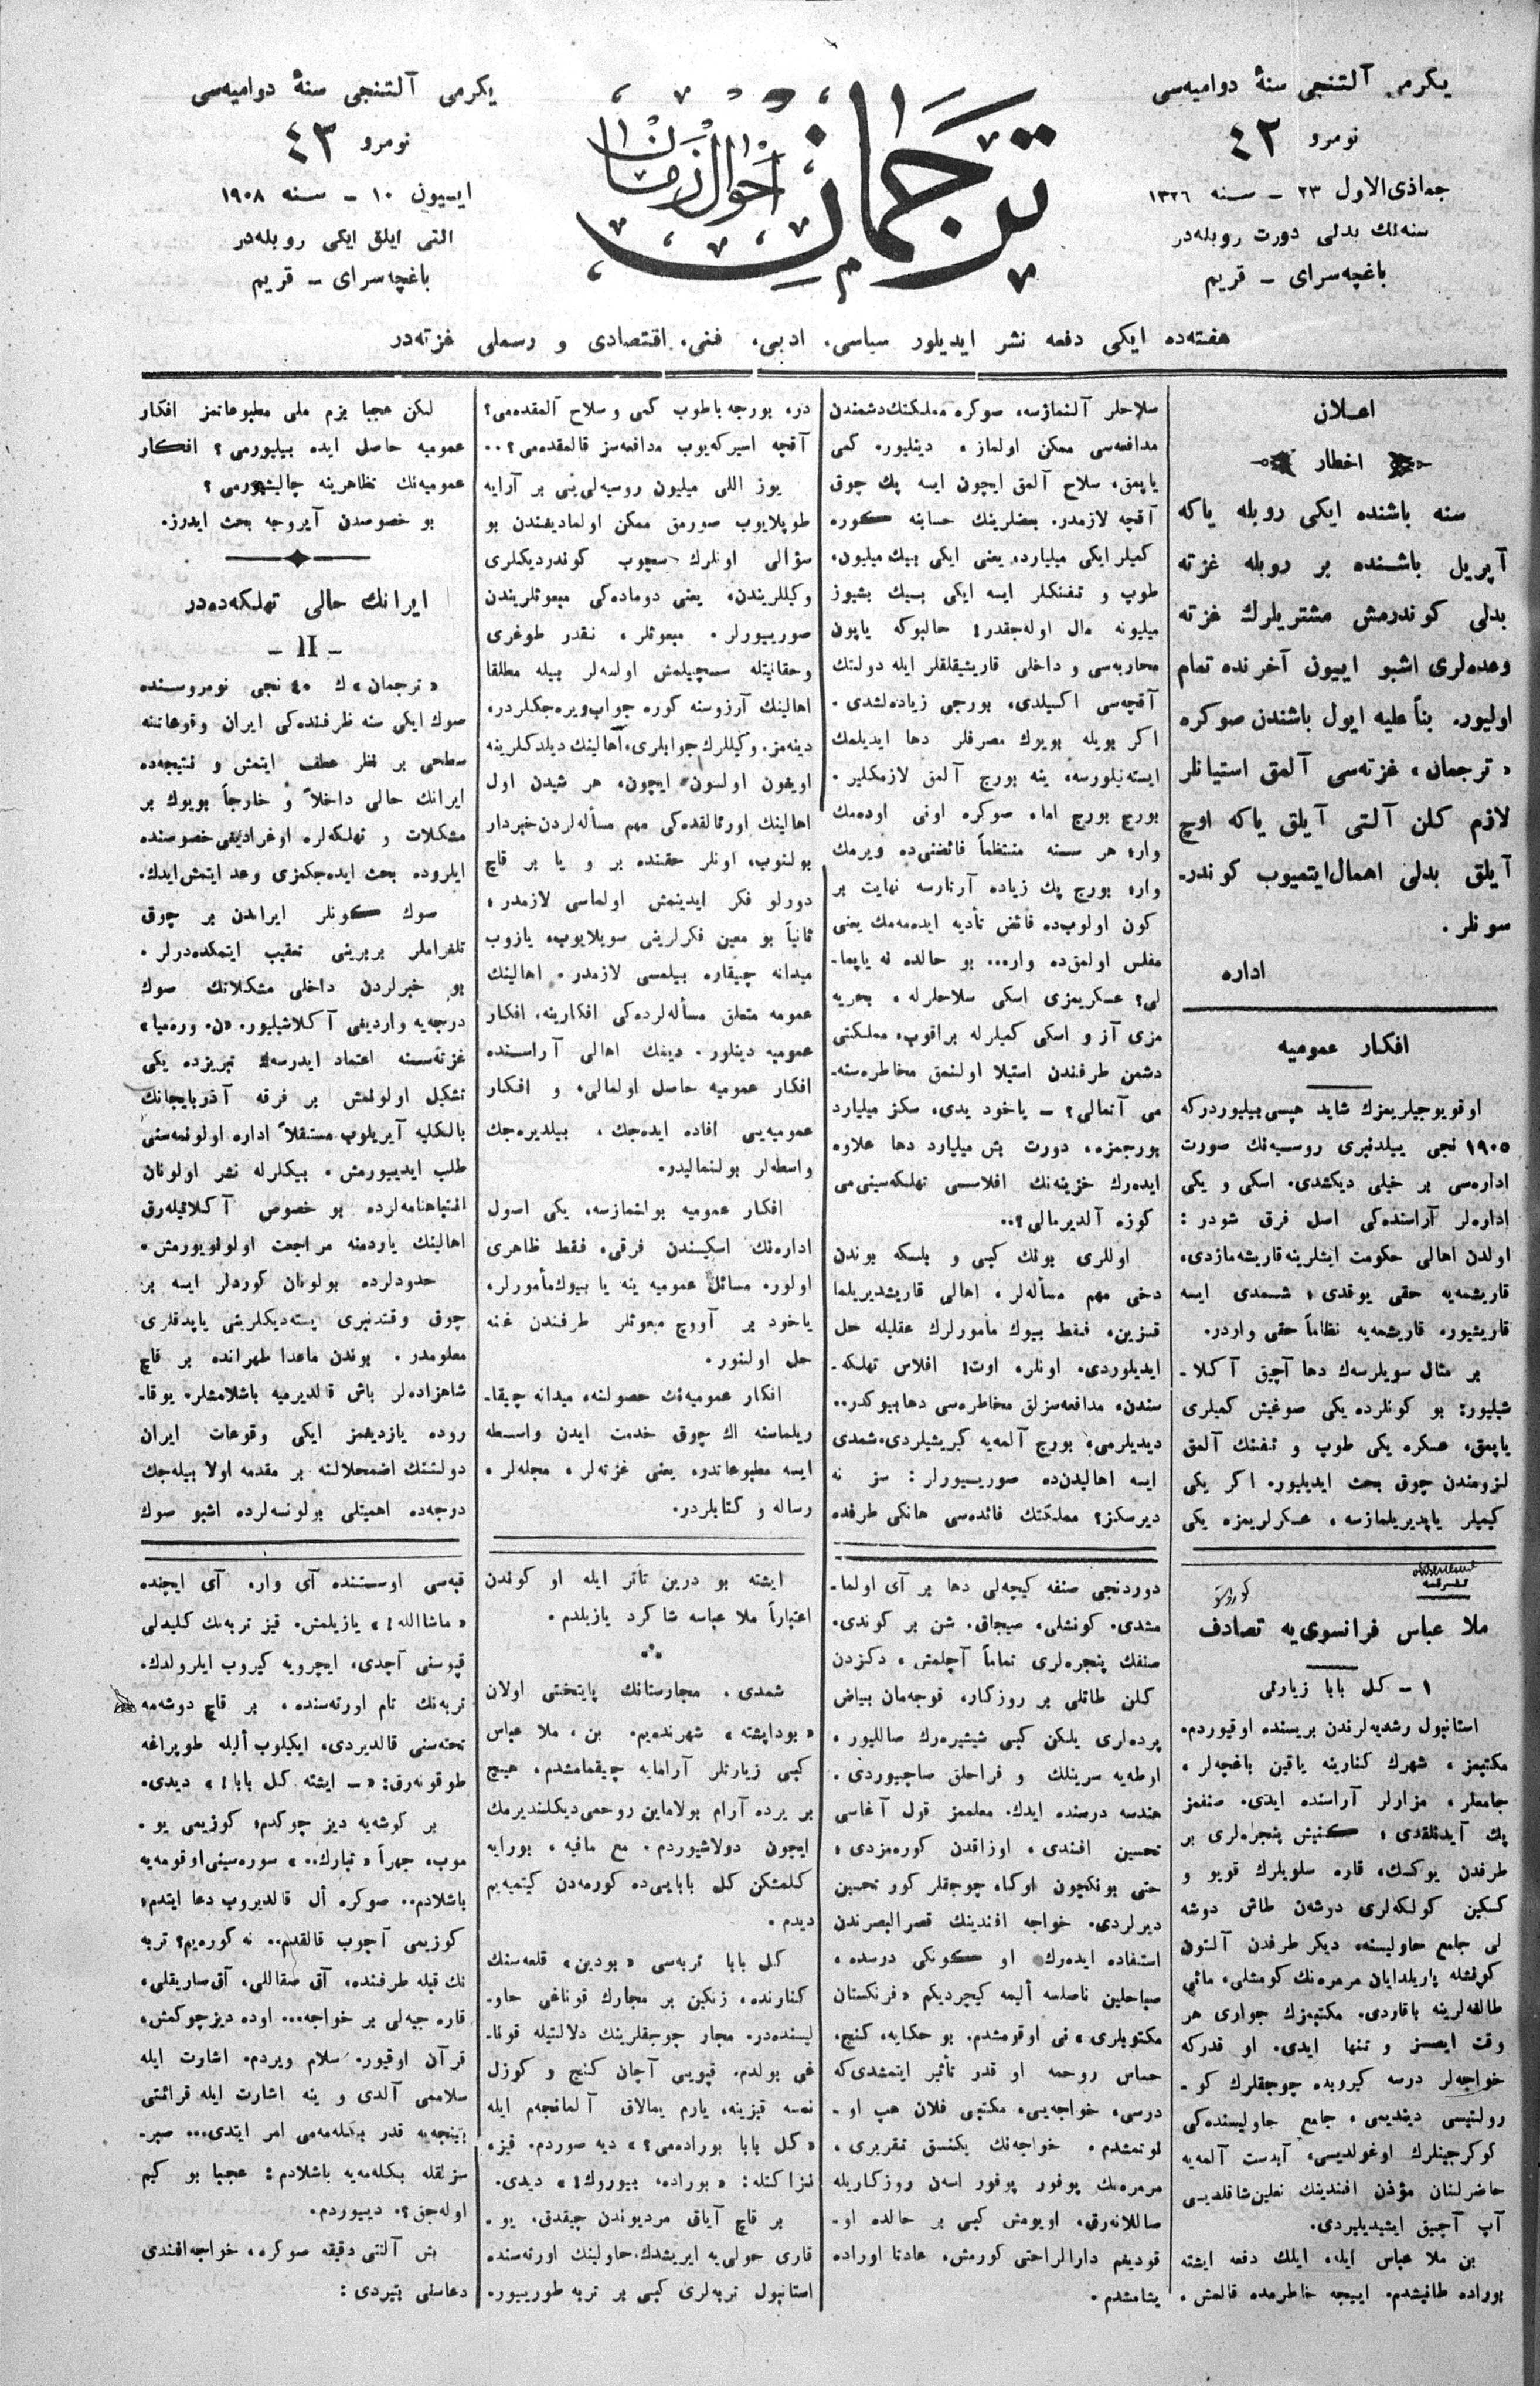 يكرمى آلتنجى سنۀ دواميه‌سى
نومرو ٤٢
جماذى‌الاول ٢٣ ـ سنه ١٣٢٦
سنه‌لك بدلى دورت روبله‌در
باغچه‌سراى ـ قريم
ترجمان احوال زمان
يكرمى آلتنجى سنۀ دواميه‌سى
نومرو ٤٣
ايـيون ١٠ ـ سنه ١٩٠٨
التى ايلق ايكى روبله‌در
باغچه‌سراى ـ قريم
هفته‌ده ايكى دفعه نشر ايديلور سياسى، ادبى، فنى، اقتصادى و رسملى غزته‌در
اعلان
اخطار
سنه باشنده ايكى روبله ياكه
آپريل باشنده بر روبله غزته
بدلى كوندرمش مشتريلرك غزته
وعده‌لرى اشبو اييون آخرنده تمام
اوليور. بناً عليه ايول باشندن صوكره
«ترجمان» غزته‌سى آلمق استيانلر
لازم كلن آلتى آيلق ياكه اوچ
آيلق بدلى اهمال ايتميوب كوندر-
سونلر.
اداره
افكار عموميه
اوقويوجيلريمزك شايد هپسى بيليوردركه
١٩٠٥ نجى ييلدنبرى روسيه‌نك صورت
اداره‌سى بر خيلى ديكشدى. اسكى و يكى
اداره‌لر آراسنده‌كى اصل فرق شودر:
اولدن اهالى حكومت ايشلرينه قاريشه‌مازدى،
قاريشمه‌يه حقى يوقدى؛ شمدى ايسه
قاريشيور، قاريشمه‌يه نظاماً حقى واردر.
بر مثال سويلرسه‌ك دها آچيق آكلا-
شيليور: بو كونلرده يكى صوغيش كميلرى
ياپمق، عسكره يكى طوپ و تفنك آلمق
لزومندن چوق بحث ايديليور. اكر يكى
كيميلر ياپديريلمازسه، عسكرلريمزه يكى
سلاحلر آلنمازسه، صوكره مملكتك دشمندن
مدافعه‌سى ممكن اولماز، دينليور. كمى
ياپمق، سلاح آلمق ايچون ايسه پك چوق
آقچه لازمدر. بعضلرينك حسابنه كوره
كميلر ايكى ميليارد، يعنى ايكى بيك ميليون،
طوپ و تفنكلر ايسه ايكى بيك بشيوز
ميليونه مال اوله‌جقدر! حالبوكه ياپون
محاربه‌سى و داخلى قاريشيقلقلر ايله دولتك
آقچه‌سى اكسيلدى، بورجى زياده‌لشدى.
اكر بويله بويوك مصرفلر دها ايديلمك
ايسته‌نيلورسه، ينه بورج آلمق لازمكلير.
بورج بورج اما، صوكره اونى اوده‌مك
وار؛ هر سنه منتظماً فائضنى‌ده ويرمك
وار؛ بورج پك زياده آرتارسه نهايت بر
كون اولوب‌ده فائض تأديه ايده‌مه‌مك يعنى
مفلس اولمق‌ده وار... بو حالده نه ياپما-
لى؟ عسكريمزى اسكى سلاحلرله، بحريه
مزى آز و اسكى كميلرله براقوب، مملكتى
دشمن طرفندن استيلا اولنمق مخاطره‌سنه-
مى آتمالى؟ ـ ياخود يدى، سكز ميليارد
بورجمزه، دورت بش ميليارد دها علاوه
ايده‌رك خزينه‌نك افلاسى تهلكه‌سينى‌مى
كوزه آلديرمالى؟..
اوللرى بونك كبى و بلكه بوندن
دخى مهم مسأله‌لر، اهالى قاريشديريلما
قـزين، فقط بيوك مأمورلرك عقليله حل
ايديلوردى. اونلر، اوت! افلاس تهلكه-
سندن، مدافعه‌سزلق مخاطره‌سى دها بيوكدر..
ديديلرمى؛ بورج آلمه‌يه كيريشيلردى. شمدى
ايسه اهاليدن‌ده صوريـيورلر: سز نه
ديرسكز؟ مملكتك فائده‌سى هانكى طرفده
در، بورجه باطوب كمى و سلاح آلمقده‌مى؟
آقچه اسيركه‌يوب مدافعه‌سز قالمقده‌مى؟..
يوز اللى ميليون روسيه‌لى‌يى بر آرايه
طوپلايوب صورمق ممكن اولماديغندن بو
سؤالى اونلرك سچوب كوندرديكلرى
وكيللريندن، يعنى دوماده‌كى مبعوثلريندن
صورييورلر. مبعوثلر، نقدر طوغرى
وحقانيتله سـچيلمش اولسه‌لر بيله مطلقا
اهالينك آرزوسنه كوره جواب ويره‌جكلردر،
دينه‌مز. وكيللرك جوابلرى، اهالينك ديلدكلرينه
اويغون اولسون ايچون، هر شيدن اول
اهالينك اورتالقده‌كى مهم مسأله‌لردن خبردار
بولنوب، اونلر حقنده بر و يا بر قاچ
دورلو فكر ايدينمش اولماسى لازمدر؛
ثانياً بو معين فكرلرينى سويلايوب، يازوب
ميدانه چيقاره بيلمسى لازمدر. اهالينك
عمومه متعلق مسأله‌لرده‌كى افكارينه، افكار
عموميه دينلور. ديمك اهالى آراسنده
افكار عموميه حاصل اولمالى، و افكار
عموميه‌يى افاده ايده‌جك، بيلديره‌جك
واسطه‌لر بولنماليدر.
افكار عموميه بولنمازسه، يكى اصول
اداره‌نك اسكيسندن فرقى، فقط ظاهرى
اولور. مسائل عموميه ينه يا بيوك مأمورلر،
ياخود بر آووچ مبعوثلر طرفندن غنه
حل اولنور.
افكار عموميه‌نك حصولنه، ميدانه چيقا-
ريلماسنه اك چوق خدمت ايدن واسطه
ايسه مطبوعاتدر، يعنى غزته‌لر، مجله‌لر،
رساله و كتابلردر.
لكن عجبا بزم ملى مطبوعاتمز افكار
عموميه حاصل ايده بيليورمى؟ افكار
عموميه‌نك تظاهرينه چاليشيورمى؟
بو خصوصدن آيروجه بحث ايدرز.
ايرانك حالى تهلكه‌ده‌در
ـ II ـ
«ترجمان»ك ٤٠ نجى نومروسنده
صوك ايكى سنه ظرفنده‌كى ايران وقوعاتنه
سطحى بر نظر عطف ايتمش و نتيجه‌ده
ايرانك حالى داخلاً و خارجاً بويوك بر
مشكلات و تهلكه‌لره اوغراديغى خصوصنده
ايلروده بحث ايده‌جكمزى وعد ايتمش‌ايدك.
صوك كونلر ايراندن بر چوق
تلغرافلر بربرينى تعقيب ايتمكده‌درلر.
بو خبرلردن داخلى مشكلاتك صوك
درجه‌يه وارديغى آكلاشيليور. «ن. وره‌ميا»
غزته‌سنه اعتماد ايدرسه‌ك تبريزده يكى
تشكيل اولونمش بر فرقه آذربايجانك
بالكليه آيريلوب مستقلاً اداره اولونمه‌سنى
طلب ايديبورمش. بيكلرله نشر اولونان
انتباهنامه‌لرده بو خصوص آكلاتيله‌رق
اهالينك ياردمنه مراجعت اولونويورمش.
حدودلرده بولونان كوردلر ايسه بر
چوق وقتدنبرى يسته‌ديكلرينى ياپدقلرى
معلومدر. بوندن ماعدا طهرانده بر قاچ
شاهزاده‌لر باش قالديرميه باشلامشلر. يوقا-
روده يازديغمز ايكى وقوعات ايران
دولتنك اضمحلالنه بر مقدمه اولا بيله‌جك
درجه‌ده اهميتلى بولونسه‌لرده اشبو صوك
تفرقه
ملا عباس فرانسوى‌يه تصادف
١ ـ كل بابا زيارتى
استانبول رشديه‌لرندن بريسنده اوقيوردم.
مكتبمز، شهرك كنارينه ياقين باغچه‌لر،
جامعلر، مزارلر آراسنده ايدى. صنفمز
پك آيدنلقدى؛ كنيش پنجره‌لرى بر
طرفدن يوكسك، قاره سلويلرك قويو و
كسكين كولكه‌لرى دوشن طاش دوشه
لى جامع حاوليسنه، ديكر طرفدن آلتون
كونشله پاريلدايان مرمره‌نك كومشلى، مائى
طالغه‌لرينه باقاردى. مكتبمزك جوارى هر
وقت ايصسز و تنها ايدى. او قدركه
خواجه‌لر درسه كيروبده چوجقلرك كو-
رولتيسى دينديمى، جامع حاوليسنده‌كى
كوكرجينلرك اوغولديسى، آبدست آلمه‌يه
حاضرلنان مؤذن افندينك نعلين شاقلديسى
آپ آچيق ايشيديليردى.
بن ملا عباس ايله، ايلك دفعه ايشته
بوراده طانيشدم. اييجه خاطرمده قالمش،
دوردنجى صنفه كيچه‌لى دها بر آى اولما-
مشدى. كونشلى، صيجاق، شن بر كوندى.
صنفك پنجره‌لرى تماماً آچلمش، دكزدن
كلن طاتلى بر روزكار، قوجه‌مان بياض
پرده‌لرى يلكن كبى شيشيره‌رك صاللييور،
اوطه‌يه سرينلك و فراحلق صاچيوردى.
هندسه درسنده ايدك. معلممز قول آغاسى
تحسين افندى، اوزاقدن كوره‌مزدى؛
حتى بونكچون اوكا، چوجقلر كور تحسين
ديرلردى. خواجه افندينك قصرالبصرندن
استفاده ايده‌رك، او كونكى درسده،
صباحلين ناصلسه أليمه كيچرديكم «فرنكستان
مكتوبلرى» نى اوقومشدم. بو حكايه، كنج،
حساس روحمه او قدر تأثير ايتمشدى‌كه
درسى، خواجه‌يى، مكتبى فلان هپ او-
نوتمشدم. خواجه‌نك يكنسق تقريرى،
مرمره‌نك پوفور پوفور اسه‌ن روزكاريله
صاللانه‌رق، اويومش كبى بر حالده او-
قوديغم دارالراحتى كورمش، عادتا اوراده
يشامشدم.
ايشته بو درين تأثر ايله او كوندن
اعتباراً ملا عباسه شاكرد يازيلدم.
شمدى، مجارستانك پايتختى اولان
«بوداپشته» شهرنده‌يم. بن، ملا عباس
كبى زيارتلر آرامايه چيقمامشدم. هيچ
بر يرده آرام بولاماين روحمى ديكلنديرمك
ايچون دولاشيوردم. مع مافيه، بورايه
كلمشكن كل بابايى‌ده كورمه‌دن كيتميه‌يم
ديدم.
كل بابا تربه‌سى «بودين» قلعه‌سنك
كنارنده، زنكين بر مجارك قوناغى حاو-
ليسنده‌در. مجار چوجقلرينك دلالتيله قونا-
غى بولدم. قپويى آچان كنج و كوزل
نمسه قيزينه، يارم يمالاق آلمانجه‌م ايله
«كل بابا بوراده‌مى؟» ديه صوردم. قيز،
نزاكتله: «بوراده، بيوروك!» ديدى.
بر قاچ آياق مرديوندن چيقدق. يو-
قارى حولى‌يه ايريشدك. حاولينك اورته‌سنده
استانبول تربه‌لرى كبى بر تربه طورييور.
قبه‌سى اوستنده آى وار، آى ايچنده
«ماشاالله!» يازيلمش. قيز تربه‌نك كليدلى
قپوسنى آچدى، ايچرويه كيروب ايلرولدك.
تربه‌نك تام اورته‌سنده، بر قاچ دوشه‌مه
تخته‌سنى قالديردى، ايكيلوب أليله طوپراغه
طوقونه‌رق: «ـ ايشته كل بابا!» ديدى.
بر كوشه‌يه ديز چوكدم؛ كوزيمى يو-
موب، جهراً «تبارك..» سوره‌سينى اوقومه‌يه
باشلادم.. صوكره أل قالديروب دعا ايتدم؛
كوزيمى آچوب قالقدم.. نه كوره‌يم؟ تربه
نك قبله طرفنده، آق صقاللى، آق صاريقلى،
قاره جبه‌لى بر خواجه... اوده ديز چوكمش،
قرآن اوقيور. سلام ويردم. اشارت ايله
سلاممى آلدى و ينه اشارت ايله قرائتى
بتينجه‌يه قدر بكله‌مه‌مى امر ايتدى... صبر-
سزلقله بكله‌مه‌يه باشلادم: عجبا بو كيم
اوله‌جق؟. دييوردم.
بش آلتى دقيقه صوكره، خواجه افندى
دعاسنى بتيردى: